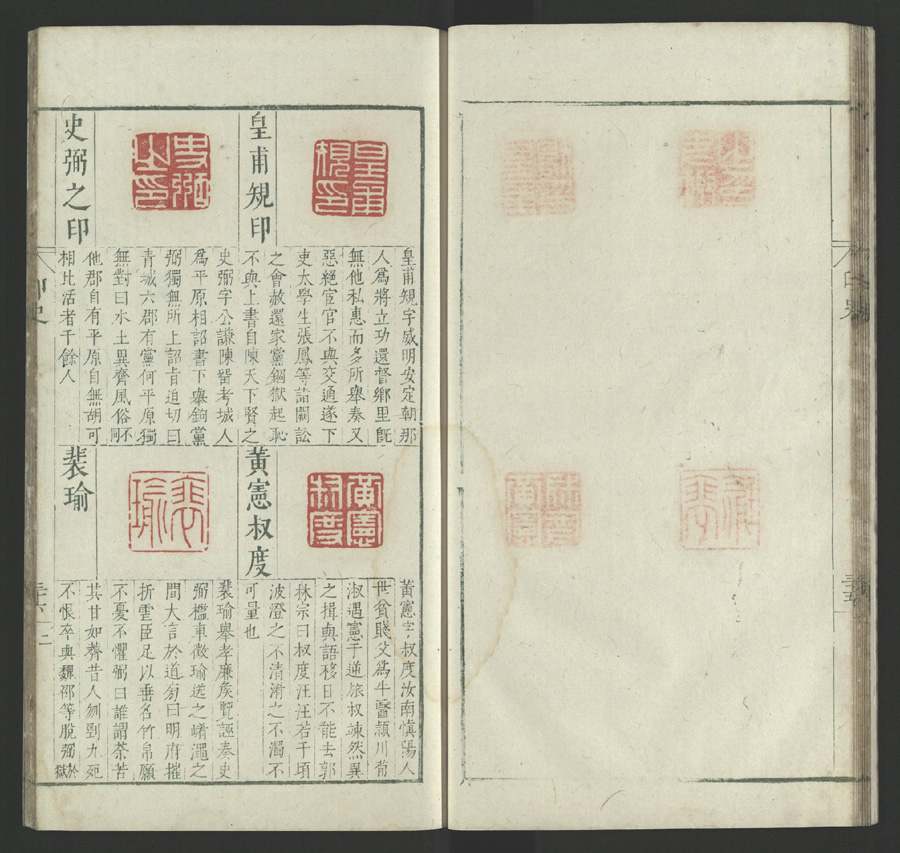 皇甫規印
皇甫規印
皇甫規字威明安定朝那
人為將立功還督鄉里旣
無他私惠而多所舉奏又
惡絕宦官不與交通遂下
吏太學生張鳳等詣闕訟
之會赦還家黨錮獄起恥
不與上書自陳天下賢之
史弼之印
史弼之印
史弼字公謙陳留考城人
為平原相詔書下舉鉤黨
弼獨無所上詔旨迫切曰
青城六郡有黨何平原獨
無對曰水土異齊風俗不同
他郡自有平原自無胡可
相比活者千餘人
黃憲叔度
黃憲叔度
黃憲字叔度汝南愼陽人
世貧賤父為牛醫潁川荀
淑遇憲于逆旅叔竦然異
之揖與語移日不能去郭
林宗曰叔度汪汪若千頃
波澄之不清淆之不濁不
可量也
裴瑜
裴瑜
裴瑜舉孝廉矦覽誣奏史
弼檻車徵瑜送之崤澠之
間大言於道旁曰明府摧
折虐臣足以垂名竹帛願
不憂不懼弼曰誰謂荼苦
其甘如薺昔人刎剄九死
不恨卒與魏邵等脫弼於獄
印史